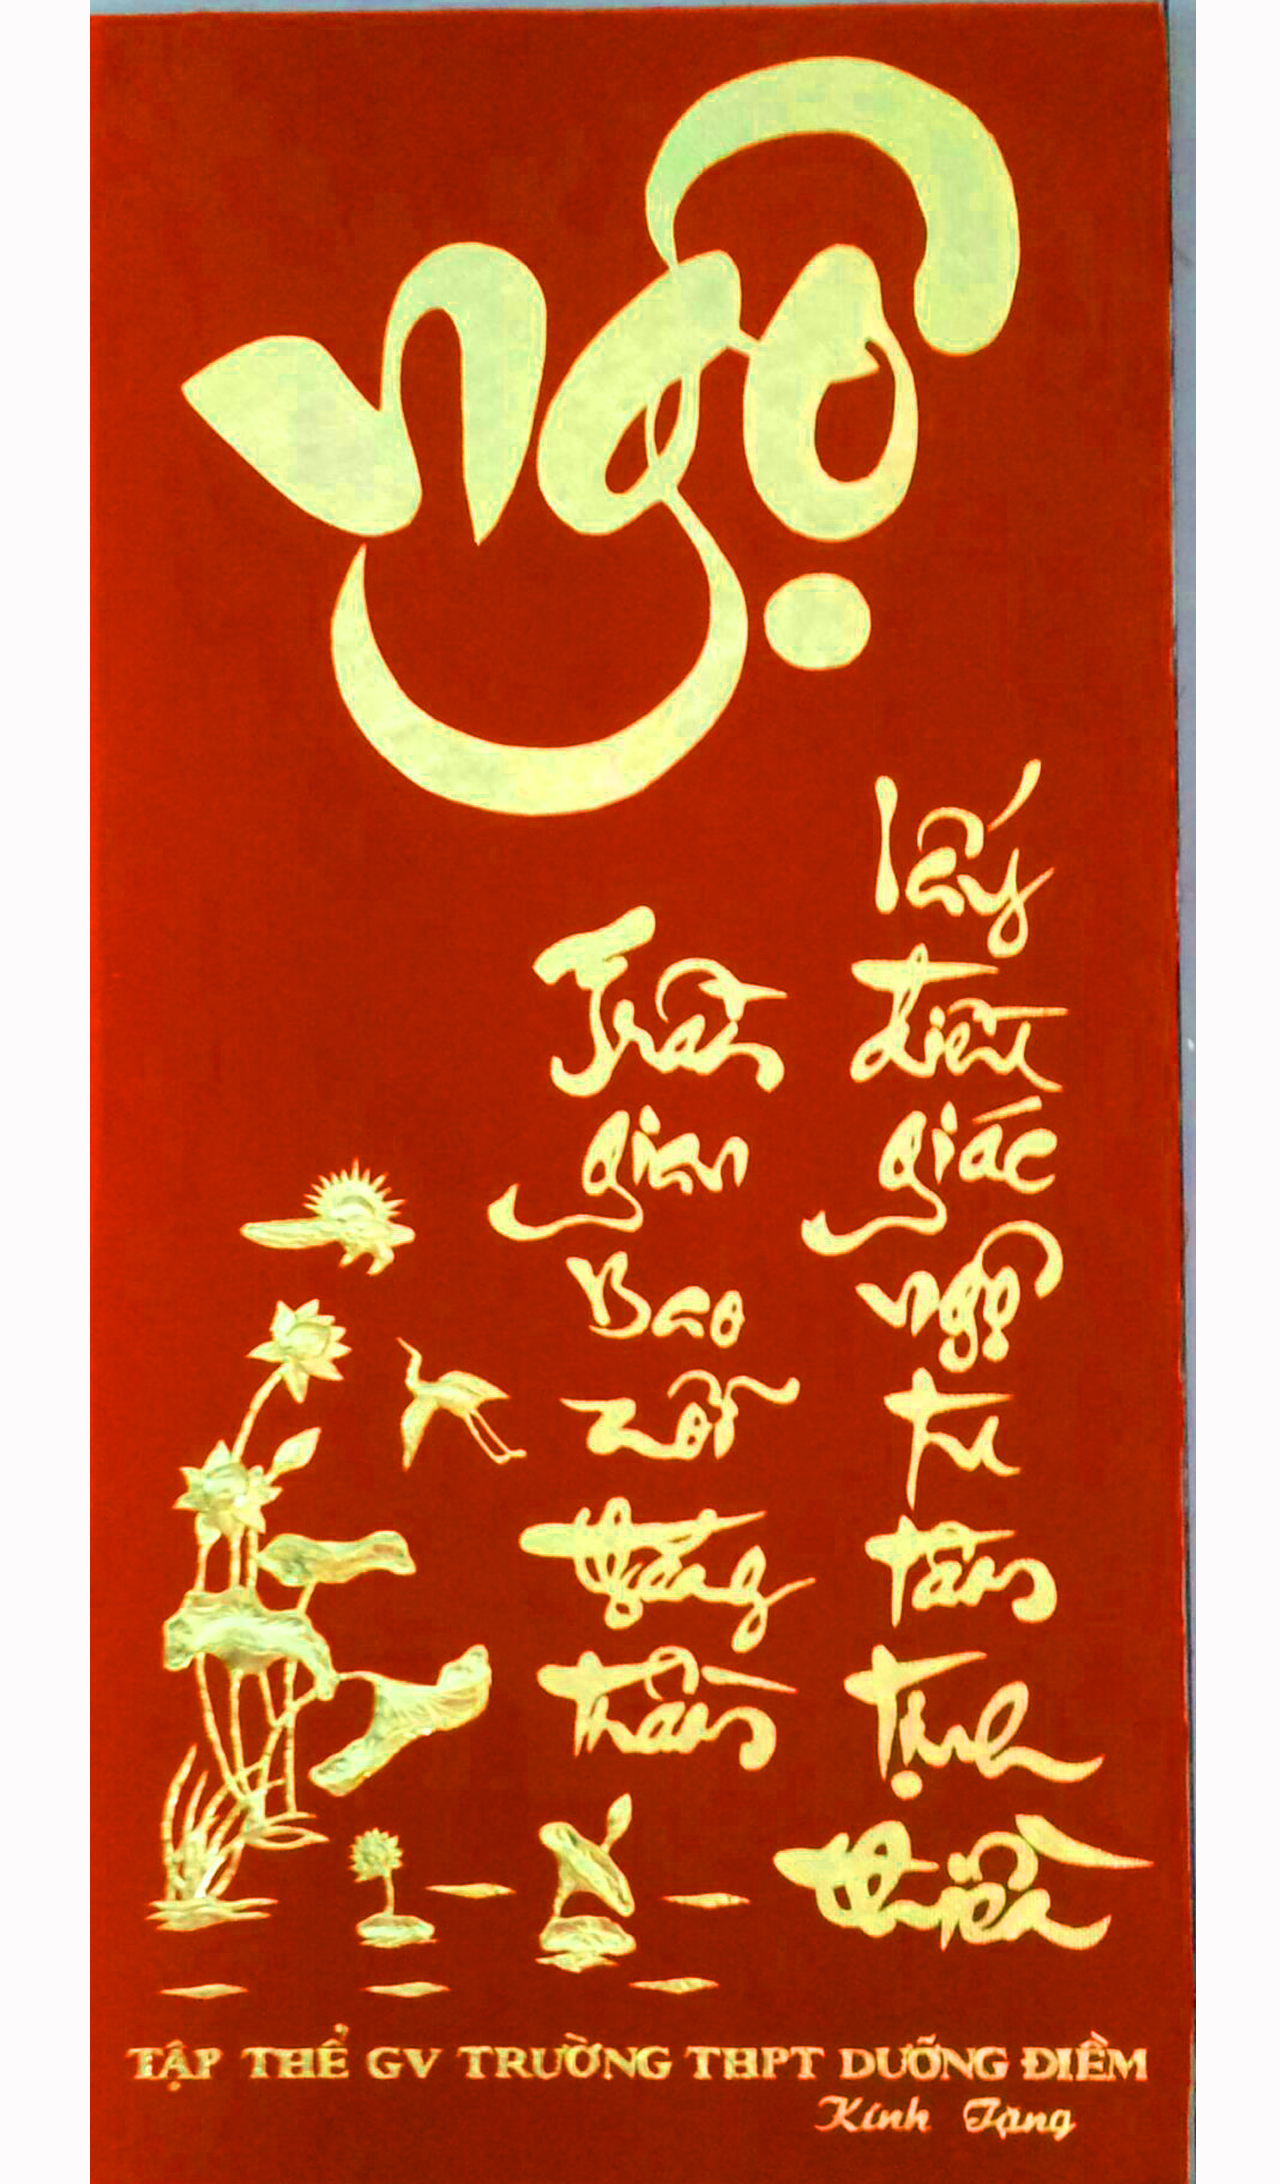 Ngộ
Trần gian Bao nỗi thăng trầm
lấy điều giác ngộ tu tâm tịnh thiền
TẬP THỂ GV TRƯỜNG THPT DƯỠNG ĐIỀM
Kính Tặng